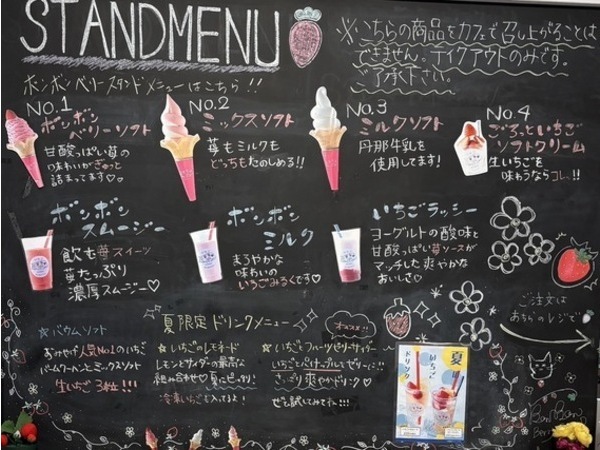 STANDMENU
※こちらの商品をカフェで召し上がることは
できません。テイクアウトのみです。
ご了承下さい。
ボンボンベリースタンドメニューはこちら!!
No.1
ボンボン
ベリーソフト
甘酸っぱい苺の
味わいがぎゅっと
詰まってます♡。
No.2
ミックスソフト
苺もミルクも
どっちもたのしめる!!
No.3
ミルクソフト
丹那牛乳を
使用してます!
No.4
ごろっといちご
ソフトクリーム
生いちごを
味わうならコレ。!!
ボンボン
スムージー
飲む苺スイーツ
苺たっぷり
濃厚スムージー♡
ボンボン
ミルク
まろやかな
味わいの
いちごみるくです♡
いちごラッシー
ヨーグルトの酸味と
甘酸っぱい苺ソースが
マッチした爽やかな
おいしさ♡
ご注文は
あちらのレジで
☆バウムソフト
おかげさま人気No.1のいちご
バームクーヘンとミックスソフト
生いちご3粒!!!
夏限定ドリンクメニュー
☆いちごのレモネード
レモンとサイダーの最高な
組み合わせ♡夏にピッタリ!
冷凍いちごも入ってるよ!
オススメ!!
☆いちごフルーツゼリーサイダー
いちごとパイナップルでゼリーに!!
さっぱり爽やかドリンク♡
ぜひ試してみてネ!!!
夏
いちご
ドリンク
BonBon
Berry